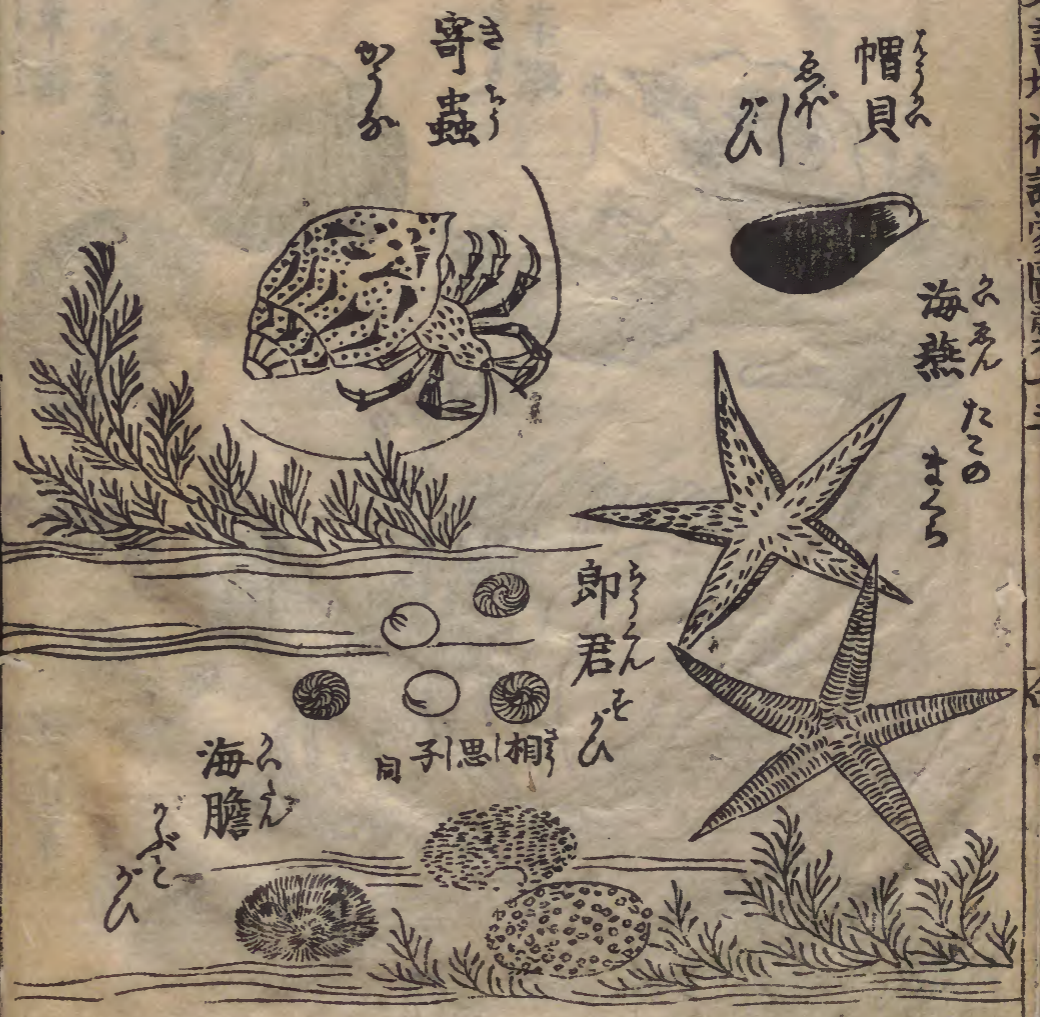 帽貝
ゑぼし
がひ
海燕
かいゑん
たこの
まくら
寄蟲
きちう
かうが
郎君
らうくん
すがひ
相思子
同
海膽
かいたん
かぶと
がひ